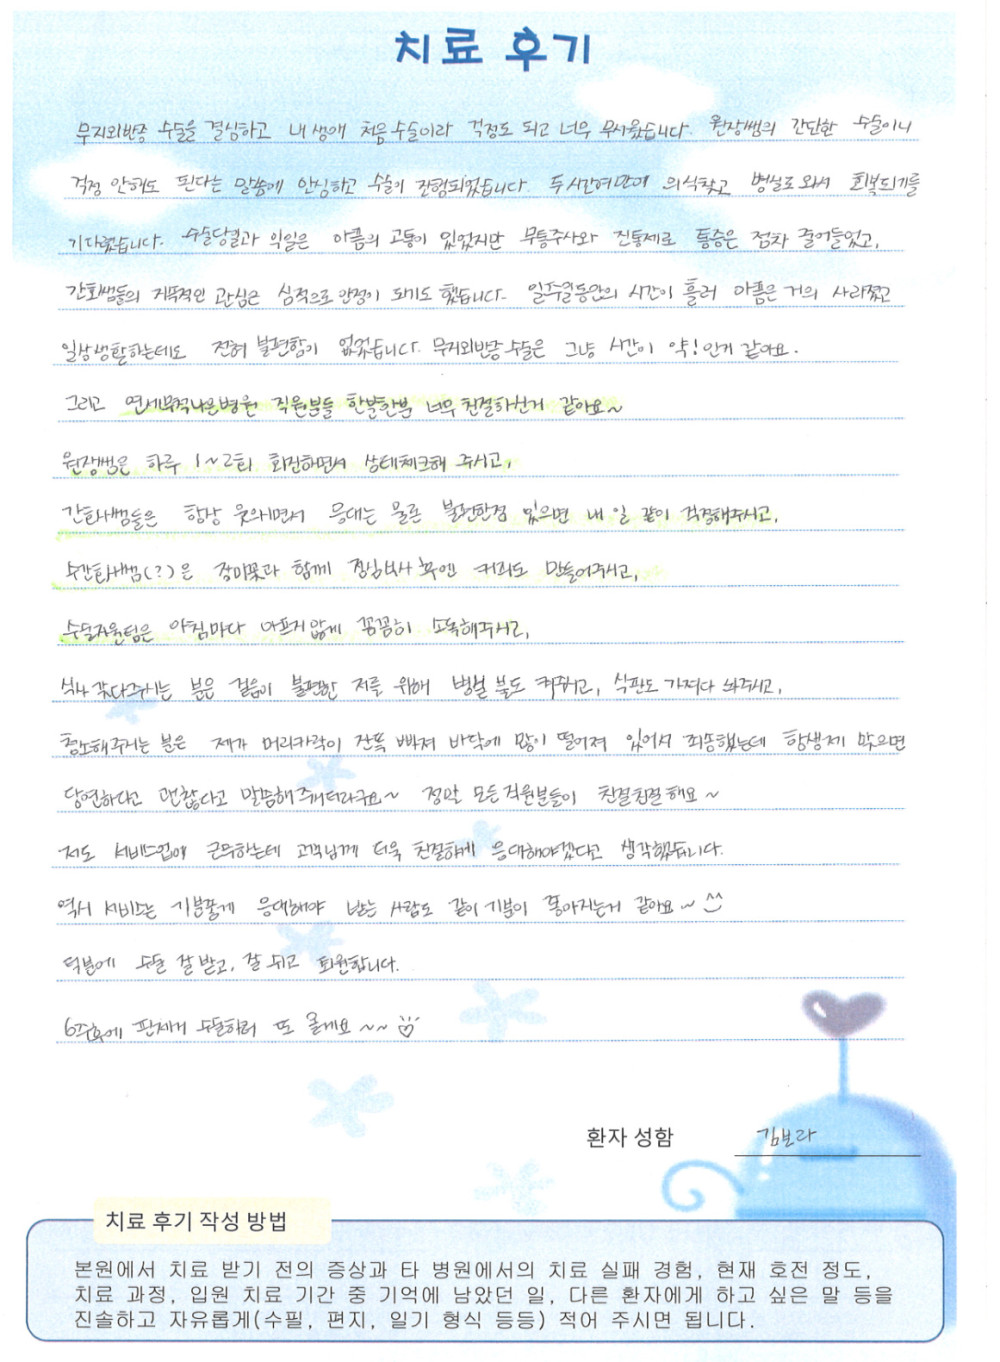 치료 후기
무지외반증 수술을 결심하고 내 생애 처음 수술이라 걱정도 되고 너무 무서웠습니다. 원장쌤의 간단한 수술이니
걱정 안해도 된다는 말씀에 안심하고 수술이 진행되었습니다. 두시간여만에 의식찾고 병실로 와서 회복되기를
기다렸습니다. 수술당일과 익일은 아픔의 고통이 있었지만 무통주사와 진통제로 통증은 점차 줄어들었고,
간호쌤들의 가족적인 관심은 심적으로 안정이 되기도 했습니다. 일주일동안의 시간이 흘러 아픔은 거의 사라졌고
일상생활하는데도 전혀 불편함이 없었습니다. 무지외반증 수술은 그냥 시간이 약! 인거 같아요.
그리고 연세무척나은병원 직원분들 한분한분 너무 친절하신거 같아요~
원장쌤은 하루 1~2회 회진하면서 상태체크해 주시고,
간호사쌤들은 항상 웃으시면서 응대는 물론 불편한점 있으면 내 일 같이 걱정해주시고,
수간호사쌤(?)은 장미꽃과 함께 점심식사 후엔 커피도 만들어주시고,
수술지원팀은 아침마다 아프지않게 꼼꼼히 소독해주시고,
식사 갖다주시는 분은 걸음이 불편한 저를 위해 병실 불도 켜주시고, 식판도 가져다 놔주시고,
청소해주시는 분은 제가 머리카락이 잔뜩 빠져 바닥에 많이 떨어져 있어서 죄송했는데 항생제 먹으면
당연하다고 괜찮다고 말씀해주시더라구요~ 정말 모든 직원분들이 친절친절해요~
저도 서비스업에 근무하는데 고객님께 더욱 친절하게 응대해야겠다고 생각했습니다.
역시 서비스는 기분좋게 응대해야 받는 사람도 같이 기분이 좋아지는거 같아요~ ^^
덕분에 수술 잘 받고, 잘 쉬고 퇴원합니다.
6주후에 핀제거 수술하러 또 올게요~~
환자 성함 김보라
치료 후기 작성 방법
본원에서 치료 받기 전의 증상과 타 병원에서의 치료 실패 경험, 현재 호전 정도,
치료 과정, 입원 치료 기간 중 기억에 남았던 일, 다른 환자에게 하고 싶은 말 등을
진솔하고 자유롭게(수필, 편지, 일기 형식 등등) 적어 주시면 됩니다.